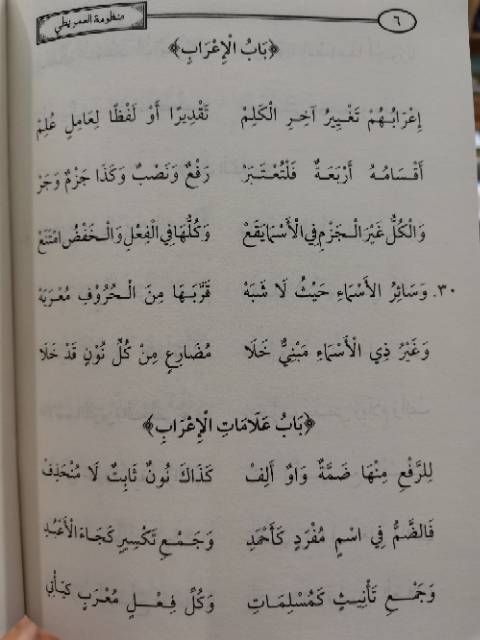 ٦ منظومة العمريطي
﴿بَابُ الْإِعْرَابِ﴾
إِعْرَابُهُمْ تَغْيِيرُ آخِرِ الْكَلِمْ تَقْدِيرًا أَوْ لَفْظًا لِعَامِلٍ عُلِمْ
أَقْسَامُهُ أَرْبَعَةٌ فَلْتُعْتَبَرْ رَفْعٌ وَنَصْبٌ وَكَذَا جَزْمٌ وَجَرْ
وَالْكُلُّ غَيْرَ الْجَزْمِ فِي الْأَسْمَا يَقَعْ وَكُلُّهَا فِي الْفِعْلِ وَالْخَفْضُ امْتَنَعْ
٣٠. وَسَائِرُ الْأَسْمَاءِ حَيْثُ لَا شَبَهْ قَرَّبَهَا مِنَ الْحُرُوفِ مُعْرَبَهْ
وَغَيْرُ ذِي الْأَسْمَاءِ مَبْنِيٌّ خَلَا مُضَارِعٍ مِنْ كُلِّ نُوْنٍ قَدْ خَلَا
﴿بَابُ عَلَامَاتِ الْإِعْرَابِ﴾
لِلرَّفْعِ مِنْهَا ضَمَّةٌ وَاوٌ أَلِفْ كَذَاكَ نُونٌ ثَابِتٌ لَا مُنْحَذِفْ
فَالضَّمُّ فِي اسْمٍ مُفْرَدٍ كَأَحْمَدِ وَجَمْعِ تَكْسِيرٍ كَجَاءَ الْأَعْبُدِ
وَجَمْعِ تَأْنِيثٍ كَمُسْلِمَاتِ وَكُلِّ فِعْلٍ مُعْرَبٍ كَيَأْتِي